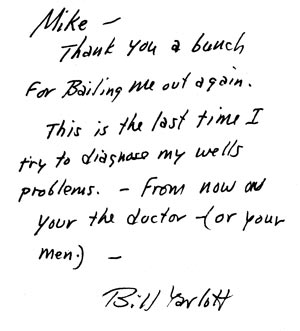 Mike –
Thank you a bunch
For Bailing me out again.
This is the last time I
try to diagnose my wells
problems. – From now on
your the doctor – (or your
men.) –
Bill Yarlott